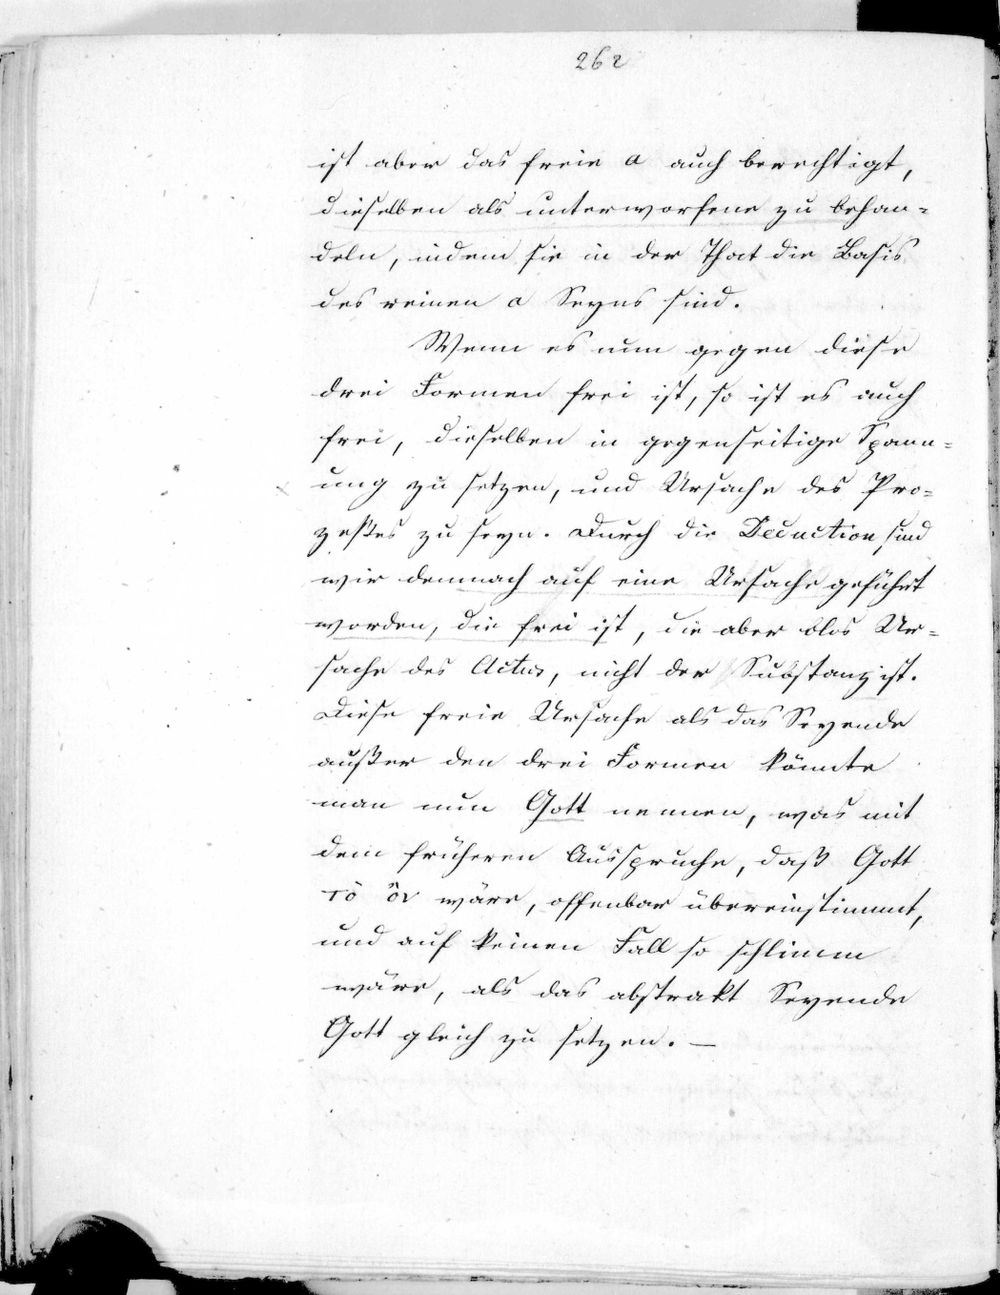 262
ist aber das freie a auch berechtigt,
dieselben als unterworfene zu behan=
deln, indem sie in der That die Basis
des reinen a Seyns sind.
Wenn es nun gegen diese
drei Formen frei ist, so ist es auch
frei, dieselben in gegenseitige Spann=
ung zu setzen, und Ursache des Pro=
zeßes zu seyn. Durch die Deduction sind
wir demnach auf eine Ursache geführt
worden, die frei ist, die aber blos Ur=
sache des Actus, nicht der Substanz ist.
Diese freie Ursache als das Seyende
außer den drei Formen könnte
man nun Gott nennen, was mit
dem früheren Ausspruche, daß Gott
τὸ ὄν wäre, offenbar übereinstimmt,
und auf keinen Fall so schlimm
wäre, als das abstrakt Seyende
Gott gleich zu setzen. —